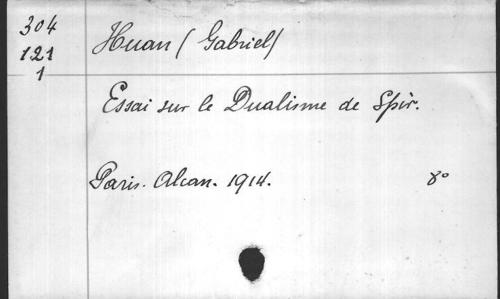 304
121
1
Huan (Gabriel)
Essai sur le Dualisme de Spir.
Paris. Alcan. 1914. 8°